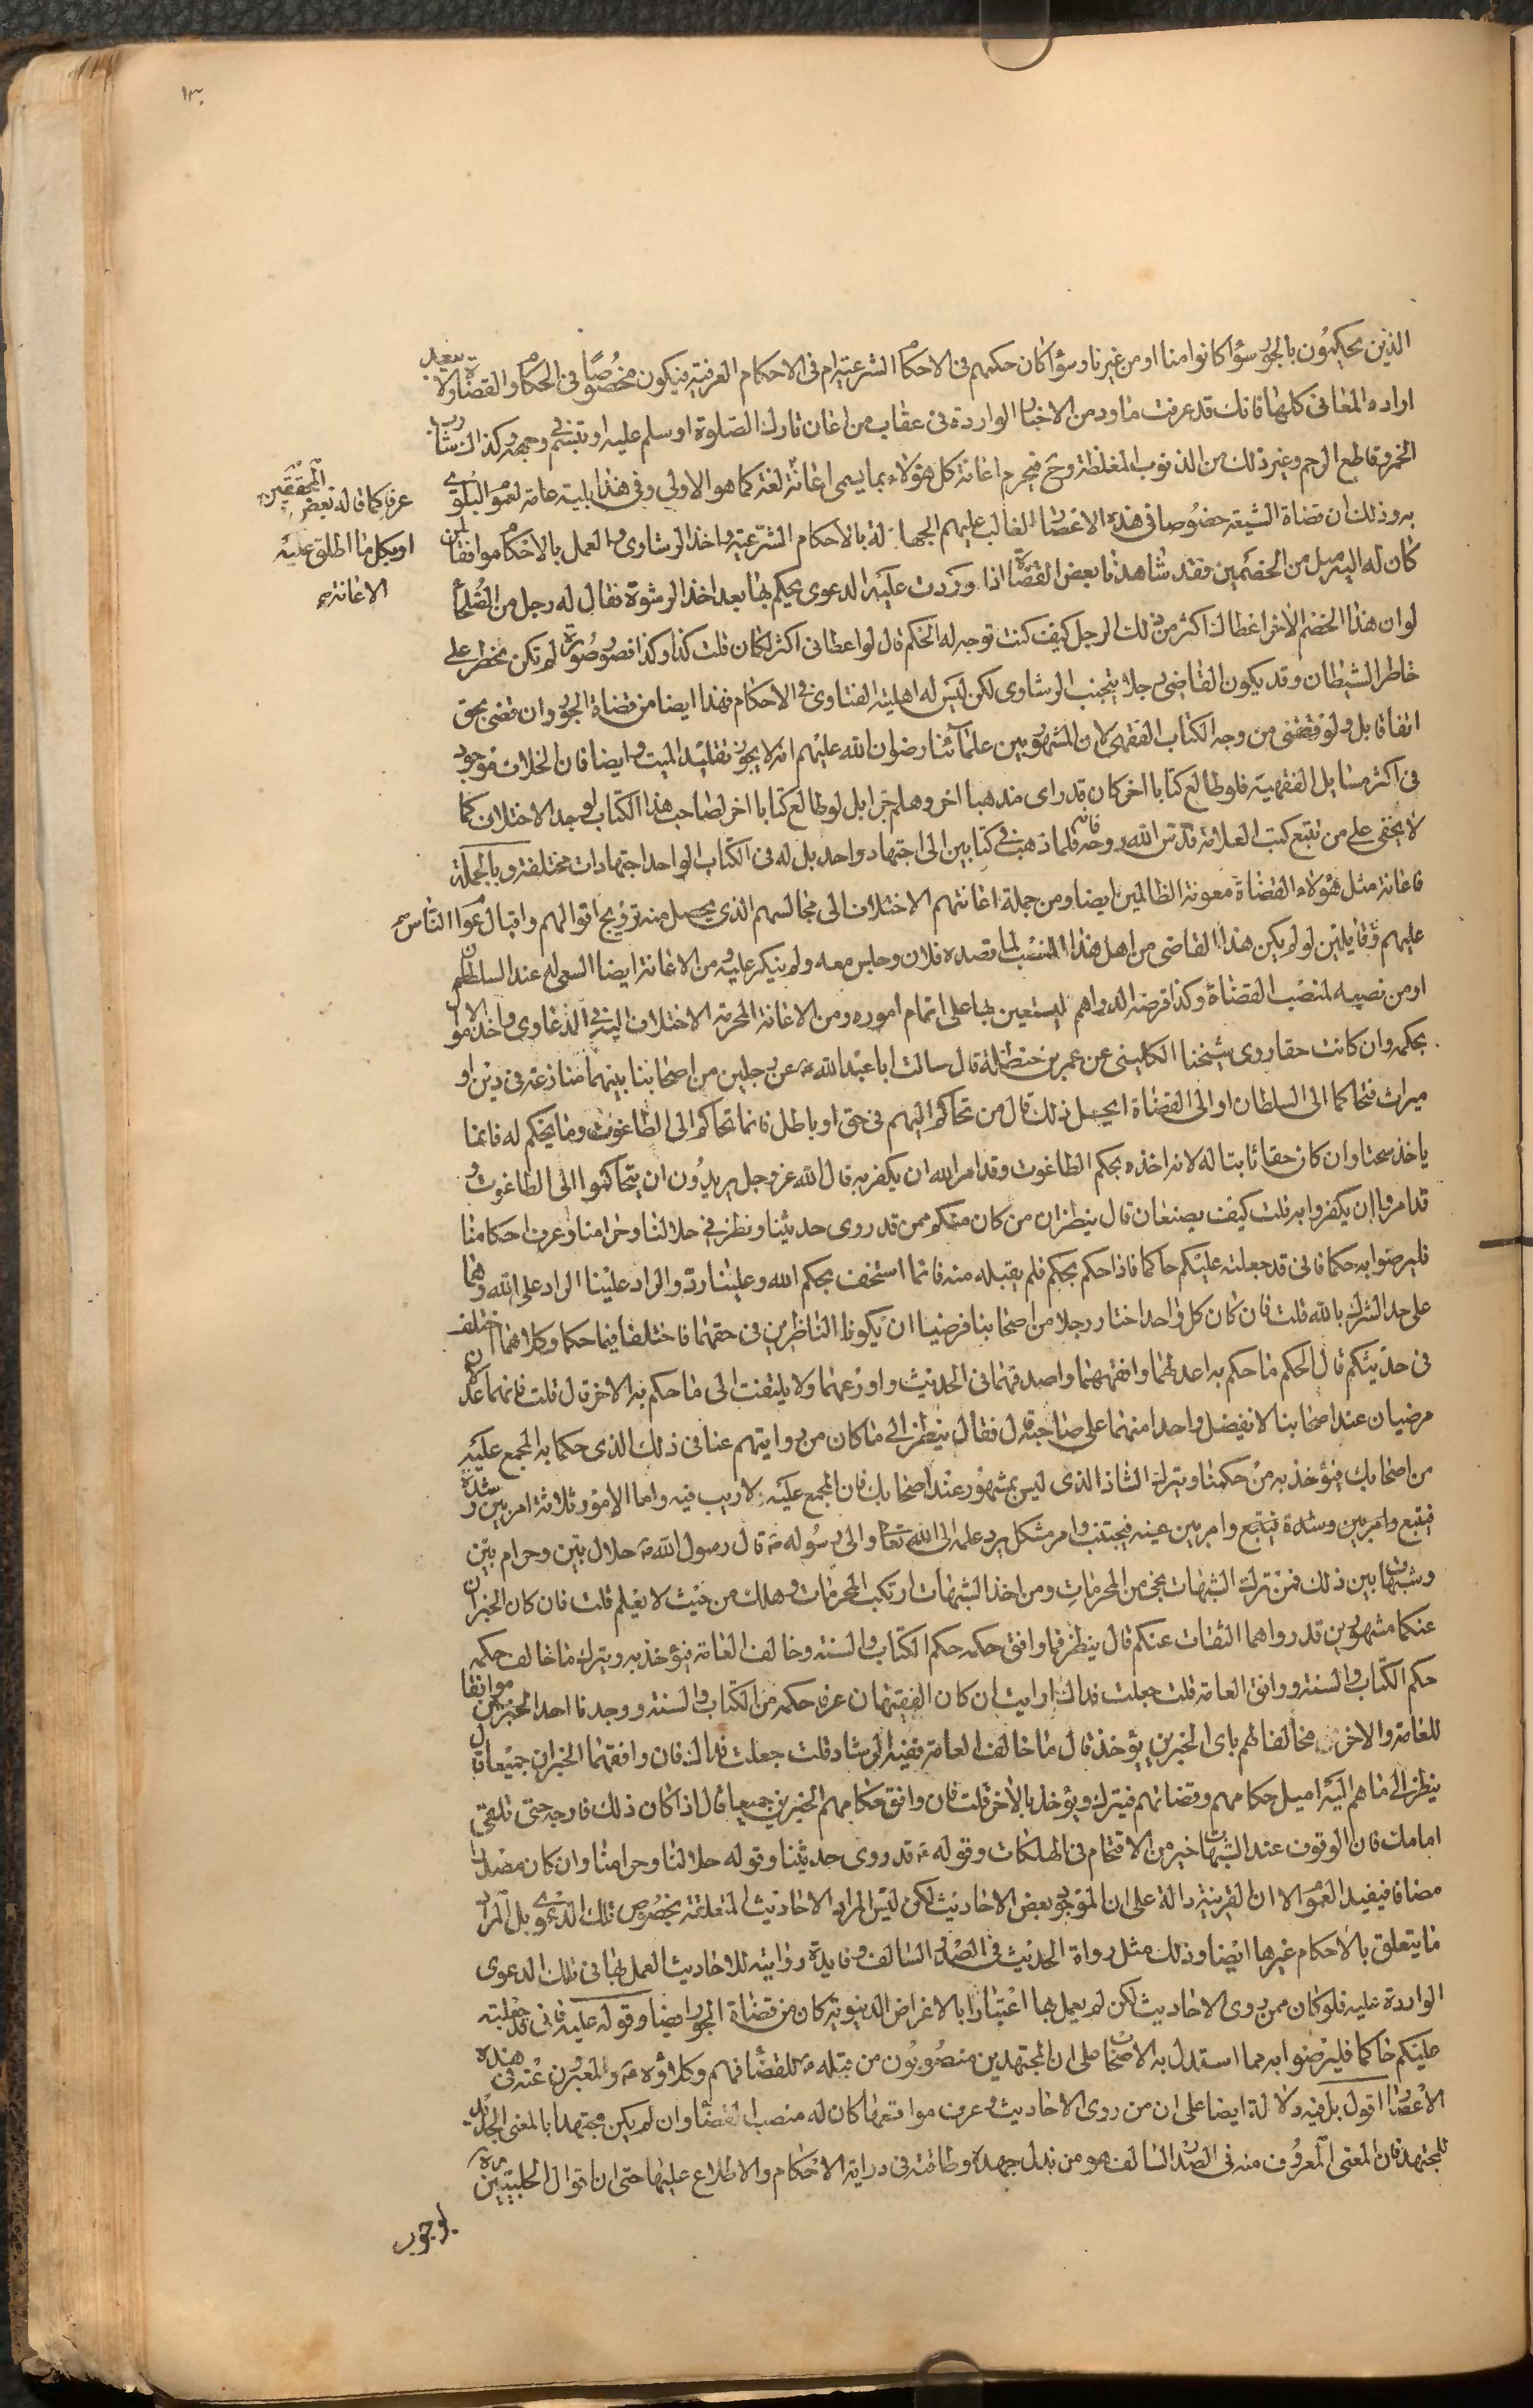 ١٣
الذين يحكمون بالجور سواء كانوا منا او من غيرنا وسواء كان حكمهم فى الاحكام الشرعية ام فى الاحكام العرفية فيكون مخصوصا فى الحكام والقضاة ولا يبعد
ارادة المعانى كلها فانك قد عرفت ما ورد من الاخبار الواردة فى عقاب من اعان تارك الصلوة او سلم عليه او تبسم فى وجهه وكذلك شارب
الخمر وقاطع الرحم وغير ذلك من الذنوب المغلظة وح فيحرم اعانة كل هؤلاء بما يسمى اعانة لغة كما هو الاولى وفى هذا بلية عامة لعموم البلوى
عرفا كما قاله بعض المحققين
او بكل ما اطلق عليه
الاعانة
به وذلك ان قضاة الشيعة خصوصا فى هذه الاعصار الغالب عليهم الجهالة بالاحكام الشرعية واخذ الرشاوى والعمل بالاحكام موافقا لمن
كان له اليه ميل من الخصمين وقد شاهدنا بعض القضاة اذا وردت عليه الدعوى يحكم بها بعد اخذ الرشوة فقال له رجل من الصلحاء
لو ان هذا الخصم الاخر اعطاك اكثر من ذلك الرجل كيف كنت توجه له الحكم قال لو اعطانى اكثر لكان قلت كذا وكذا فصور صورة لم تكن تخطر على
خاطر الشيطان وقد يكون القاضى رجلا يتجنب الرشاوى لكن ليس له اهلية الفتاوى فى الاحكام فهذا ايضا من قضاة الجور وان قضى بحق
اتفاقا بل ولو قضى من وجه الكتاب الفقهى لان المشهور بين علمائنا رضوان الله عليهم انه لا يجوز تقليد الميت وايضا فان الخلاف موجود
فى اكثر مسايل الفقهية فلو طالع كتابا اخر كان قد راى مذهبا اخر وهلم جرا بل لو طالع كتابا اخر لصاحب هذا الكتاب لوجد الاختلاف كما
لا يخفى على من تتبع كتب العلامة قدس الله روحه فانه قلما ذهب فى كتابين الى اجتهاد واحد بل له فى الكتاب الواحد اجتهادات مختلفة وبالجملة
فاعانة مثل هؤلاء القضاة معونة الظالمين ايضا ومن جملة اعانتهم الاختلاف الى مجالسهم الذى يحصل منه ترويج اقوالهم واقبال عوام الناس
عليهم قايلين لو لم يكن هذا القاضى من اهل هذا المنصب لما قصده فلان وجلس معه ولم ينكر عليه ومن الاعانة ايضا السعى له عند السلطان
او من نصبه لمنصب القضاة وكذا قرضه الدراهم ليستعين بها على اتمام اموره ومن الاعانة المحرمة الاختلاف اليه فى الدعاوى واخذ الاموال
بحكمه وان كانت حقا روى شيخنا الكلينى عن عمر بن حنظلة قال سالت ابا عبد الله ع عن رجلين من اصحابنا بينهما منازعة فى دين او
ميراث فتحاكما الى السلطان او الى القضاة ايحل ذلك قال من تحاكم اليهم فى حق او باطل فانما تحاكم الى الطاغوت وما يحكم له فانما
ياخذ سحتا وان كان حقا ثابتا له لانه اخذه بحكم الطاغوت وقد امر الله ان يكفر به قال الله عز وجل يريدون ان يتحاكموا الى الطاغوت و
قد امروا ان يكفروا به قلت كيف يصنعان قال ينظران من كان منكم ممن قد روى حديثنا ونظر فى حلالنا وحرامنا وعرف احكامنا
فليرضوا به حكما فانى قد جعلته عليكم حاكما فاذا حكم بحكم فلم يقبله منه فانما استخف بحكم الله وعلينا رد والراد علينا الراد على الله وهما
على حد الشرك بالله قلت فان كان كل واحد اختار رجلا من اصحابنا فرضيا ان يكونا الناظرين فى حقهما فاختلفا فيما حكما وكلاهما اختلف
فى حديثكم قال الحكم ما حكم به اعدلهما وافقههما واصدقهما فى الحديث واورعهما ولا يلتفت الى ما حكم به الاخر قال قلت فانهما عدلان
مرضيان عند اصحابنا لا يفضل واحد منهما على صاحبه قال فقال ينظر الى ما كان من روايتهم عنا فى ذلك الذى حكما به المجمع عليه
من اصحابك فيؤخذ به من حكمنا ويترك الشاذ الذى ليس بمشهور عند اصحابك فان المجمع عليه لا ريب فيه وانما الامور ثلاثة امر بين رشده
فيتبع وامر بين رشده فيتبع وامر بين غيه فيجتنب وامر مشكل يرد علمه الى الله تعالى والى رسوله ص قال رسول الله ص حلال بين وحرام بين
وشبهات بين ذلك فمن ترك الشبهات نجى من المحرمات ومن اخذ الشبهات ارتكب المحرمات وهلك من حيث لا يعلم قلت فان كان الخبران
عنكما مشهورين قد رواهما الثقات عنكم قال ينظر فما وافق حكمه حكم الكتاب والسنة وخالف العامة فيؤخذ به ويترك ما خالف حكمه
حكم الكتاب والسنة ووافق العامة قلت جعلت فداك ارايت ان كان الفقيهان عرفا حكمه من الكتاب والسنة ووجدنا احد الخبرين موافقا
للعامة والاخر مخالفا لهم باى الخبرين يؤخذ قال ما خالف العامة ففيه الرشاد قلت جعلت فداك فان وافقهما الخبران جميعا قال
ينظر الى ما هم اليه اميل حكامهم وقضاتهم فيترك ويؤخذ بالاخر قلت فان وافق حكامهم الخبرين جميعا قال اذا كان ذلك فارجه حتى تلقى
امامك فان الوقوف عند الشبهات خير من الاقتحام فى الهلكات وقوله ع قد روى حديثنا وقوله حلالنا وحرامنا وان كان مصدرا
مضافا فيفيد العموم الا ان القرينة دالة على ان الموجود بعض الاحاديث لكن ليس المراد الاحاديث المتعلقة بخصوص تلك الدعوى بل المراد
ما يتعلق بالاحكام غيرها ايضا وذلك مثل رواة الحديث فى الصدر السالف وفايدة روايته للاحاديث العمل بها فى تلك الدعوى
الواردة عليه فلو كان ممن روى الاحاديث لكن لم يعمل بها اعتبارا بالاغراض الدنيوية كان من قضاة الجور ايضا وقوله عليه فانى قد جعلته
عليكم حاكما فليرضوا به مما استدل به الاصحاب على ان المجتهدين منصوبون من قبله ع للقضاء فهم وكلاؤه ع والمعبرون عنه فى هذه
الاعصار اقول بل فيه دلالة ايضا على ان من روى الاحاديث وعرف مواقعها كان له منصب القضاء وان لم يكن مجتهدا بالمعنى الجديد
للمجتهد فان المعنى المعروف منه فى الصدر السالف هو من بذل جهده وطاقته فى دراية الاحكام والاطلاع عليها حتى ان اقوال الحلبيين
بوجوب